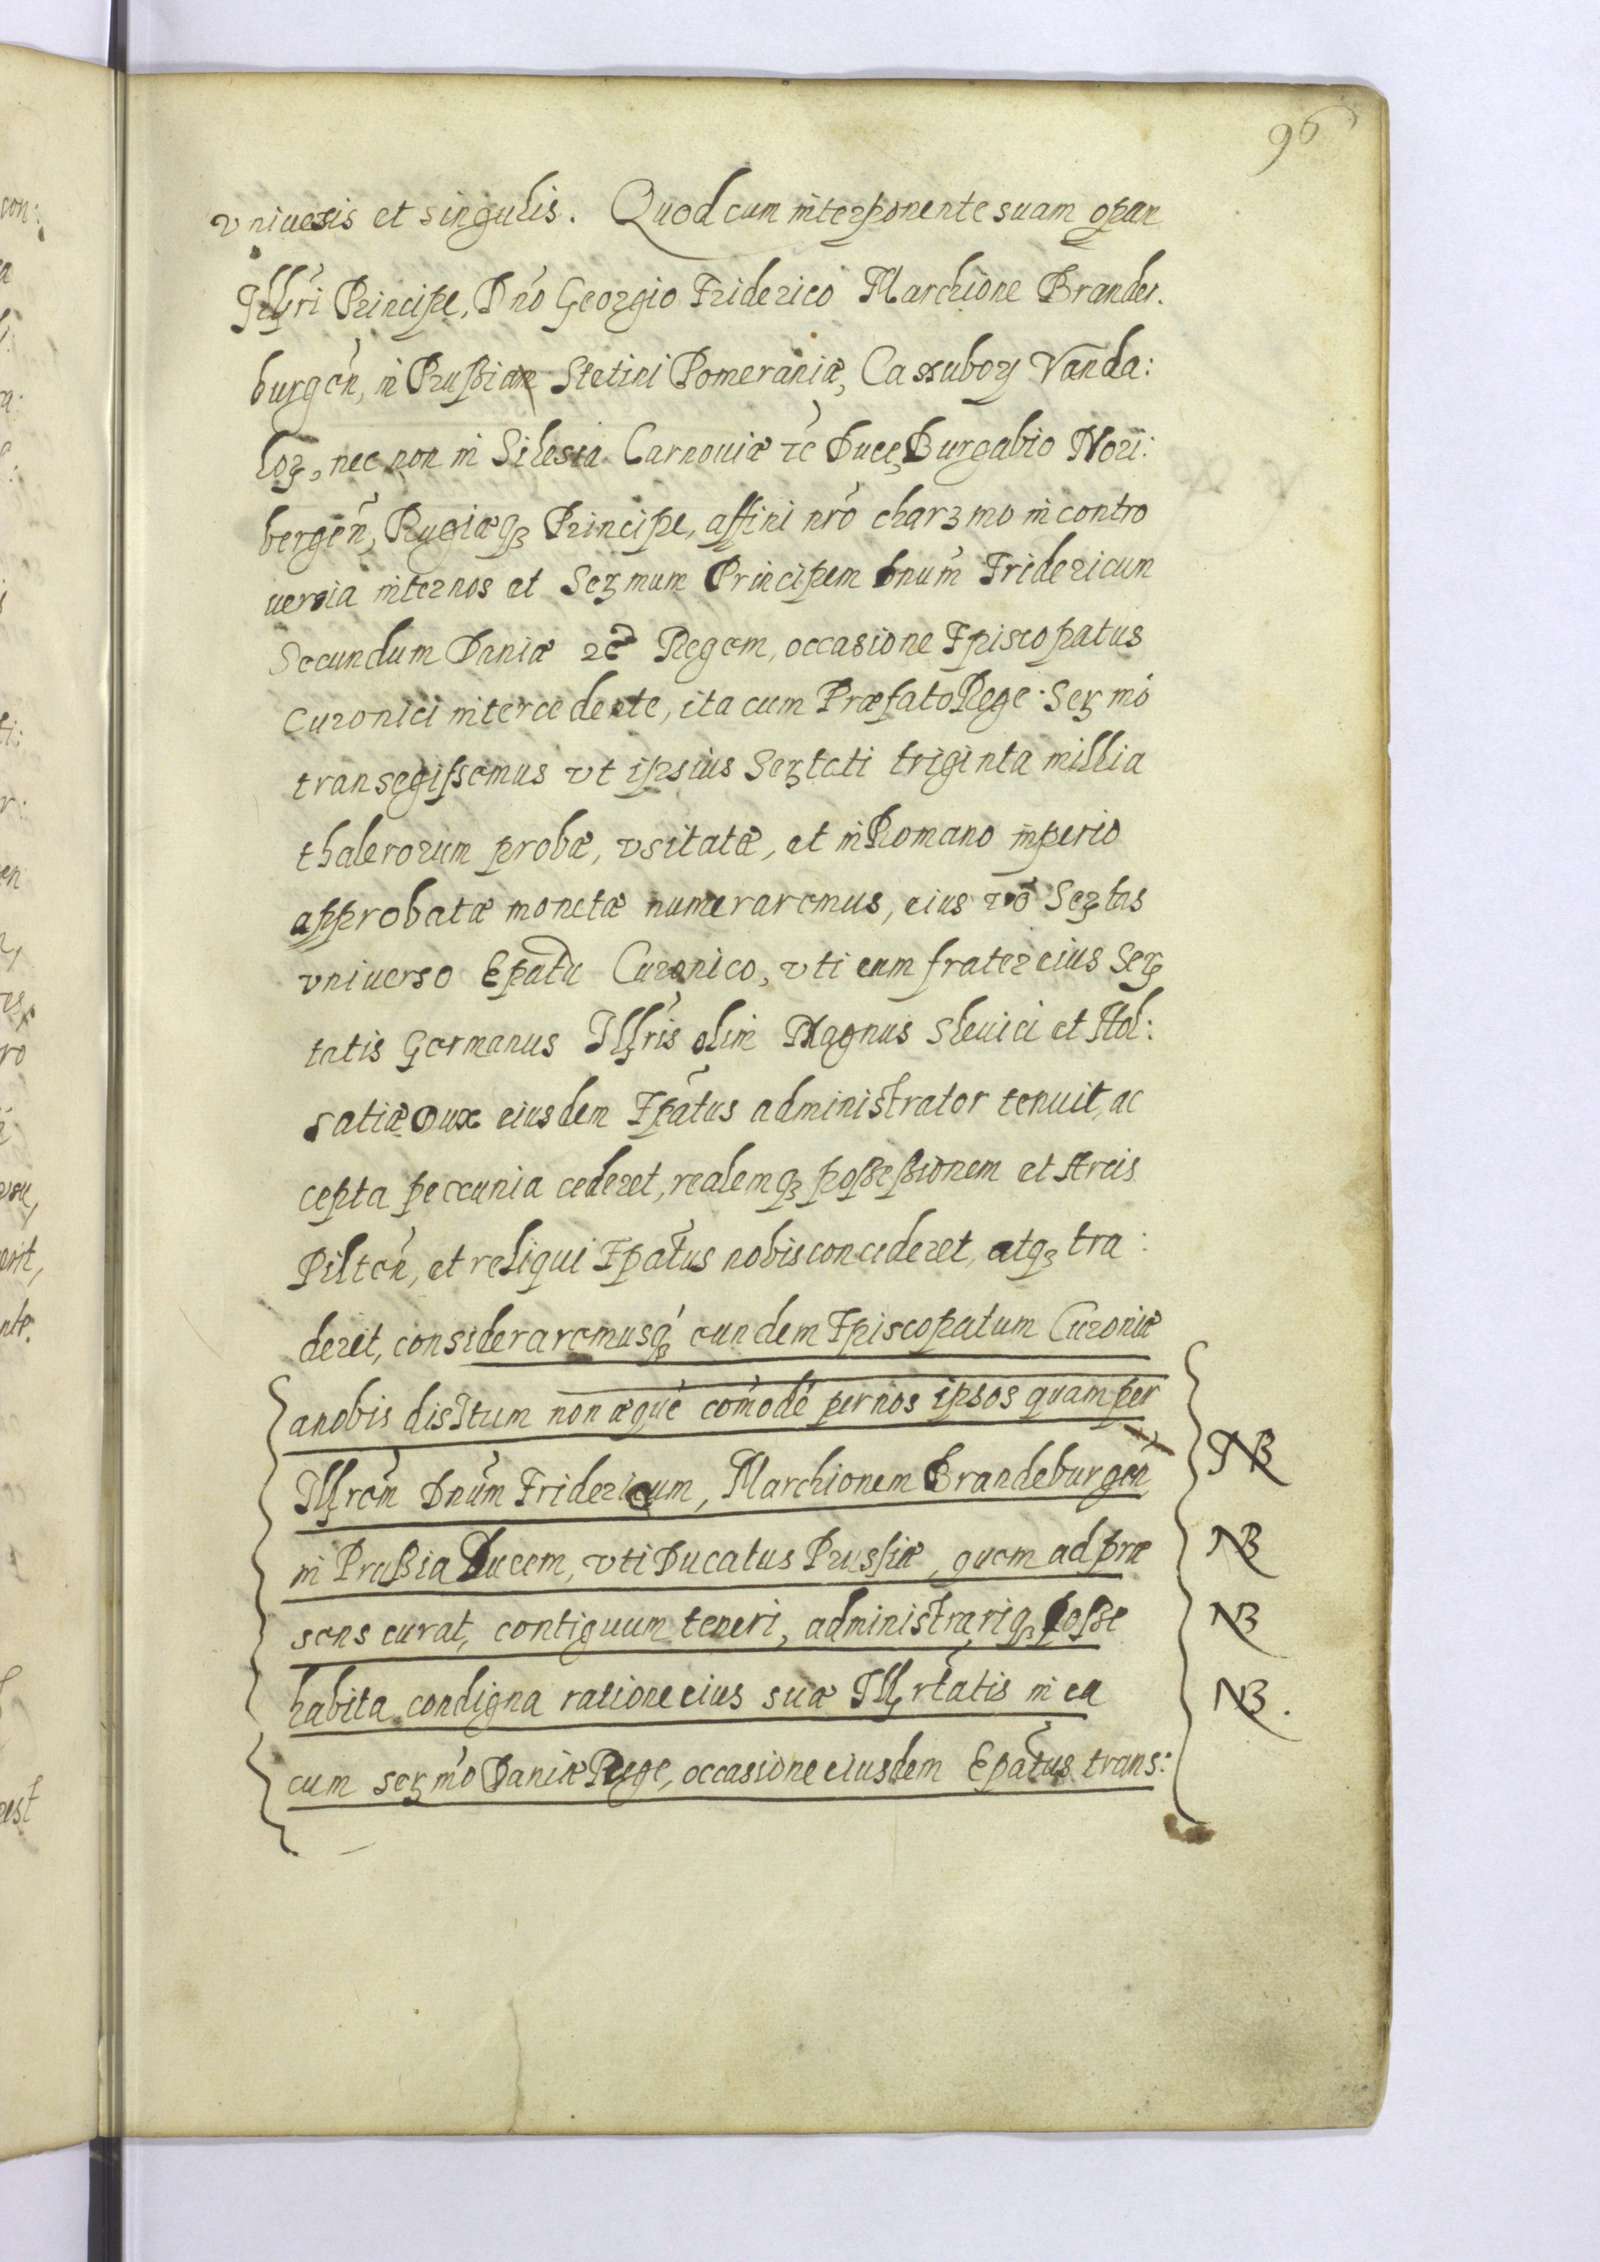 96
vniuersis et singulis. Quod cum interponente suam operam
Illri Principe, Dno Georgio Friderico Marchione Brander.
burgen, in Prußian Stetini Pomeraniæ, Cassuborz Vanda:
lorz, nec non in Silesia Carnouiæ etc Duce, Burgabio Nori:
bergen, Rugiæq3 Principe, affini nro char3mo in contro
uersia internos et Ser3mum Principem Dnum Fridericum
Secundum Daniæ etc Regem, occasione Episcopatus
Curonici intercedente, ita cum Præfato Rege Ser3mo
transegissemus vt ipsius Ser3tati triginta millia
thalerorum probæ, vsitatæ, et in Romano imperio
approbatæ monetæ numeraremus, eius vo Ser3tas
vniuerso Epatu Curonico, vti eum frater eius Ser3
tatis Germanus Illris olim Magnus Sleuici et Hol:
satiæ Dux eiusdem Epatus administrator tenuit, ac
cepta peccunia cederet, realemq3 poßeßionem et Arcis
Pilten, et reliqui Epatus nobis concederet, atq3 tra:
deret, consideraremusq3 eundem Episcopatum Curoniæ
anobis disitum non æque comode per nos ipsos quam per
Illrem Dnum Fridericum, Marchionem Brandeburgen
in Prußia Ducem, vti Ducatus Prussiæ, quem ad præ
sens curat, contiguum teneri, administrariq3 poße
habita condigna ratione eius suæ Illrtatis in ea
cum ser3mo Daniæ Rege, occasione eiusdem Epatus trans:
NB
NB
NB
NB.